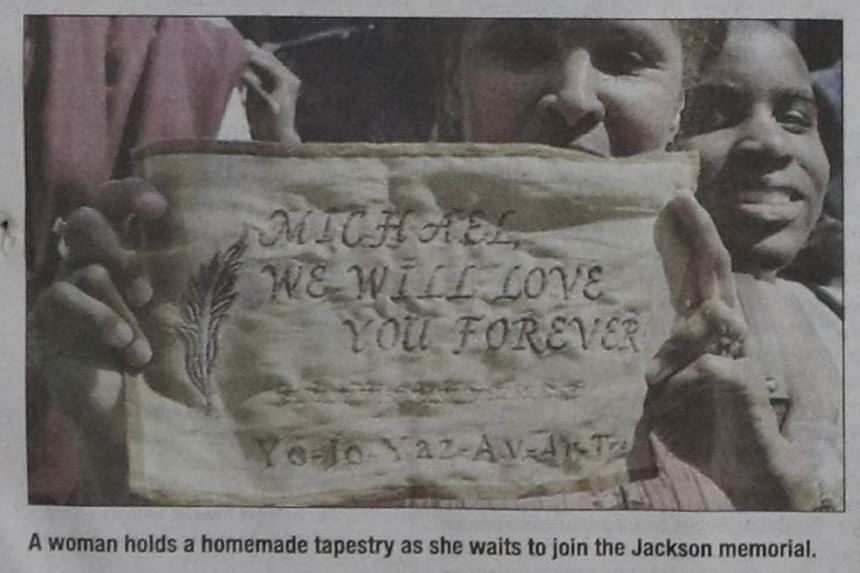 MICHAEL,
WE WILL LOVE
YOU FOREVER
Yo-Jo-Yaz-Av-Ay-
A woman holds a homemade tapestry as she waits to join the Jackson memorial.